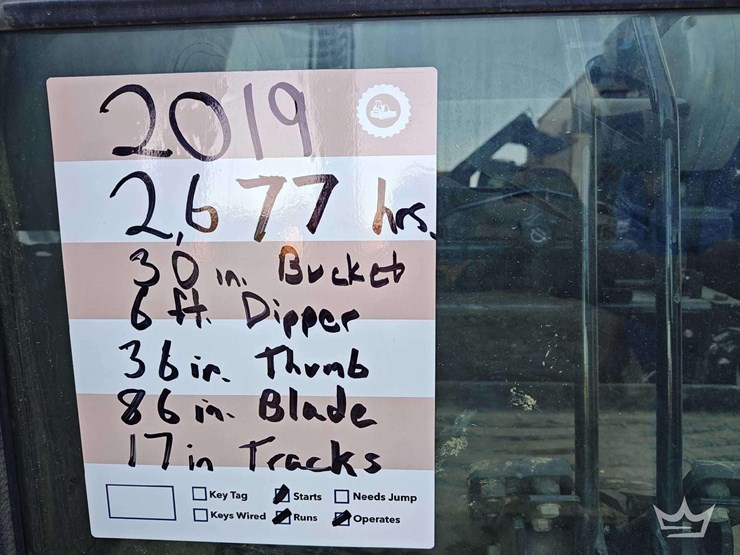 2019
2,677 hrs.
30 in. Bucket
6 ft. Dipper
36 in. Thumb
86 in. Blade
17 in Tracks
Key Tag Starts Needs Jump
Keys Wired Runs Operates